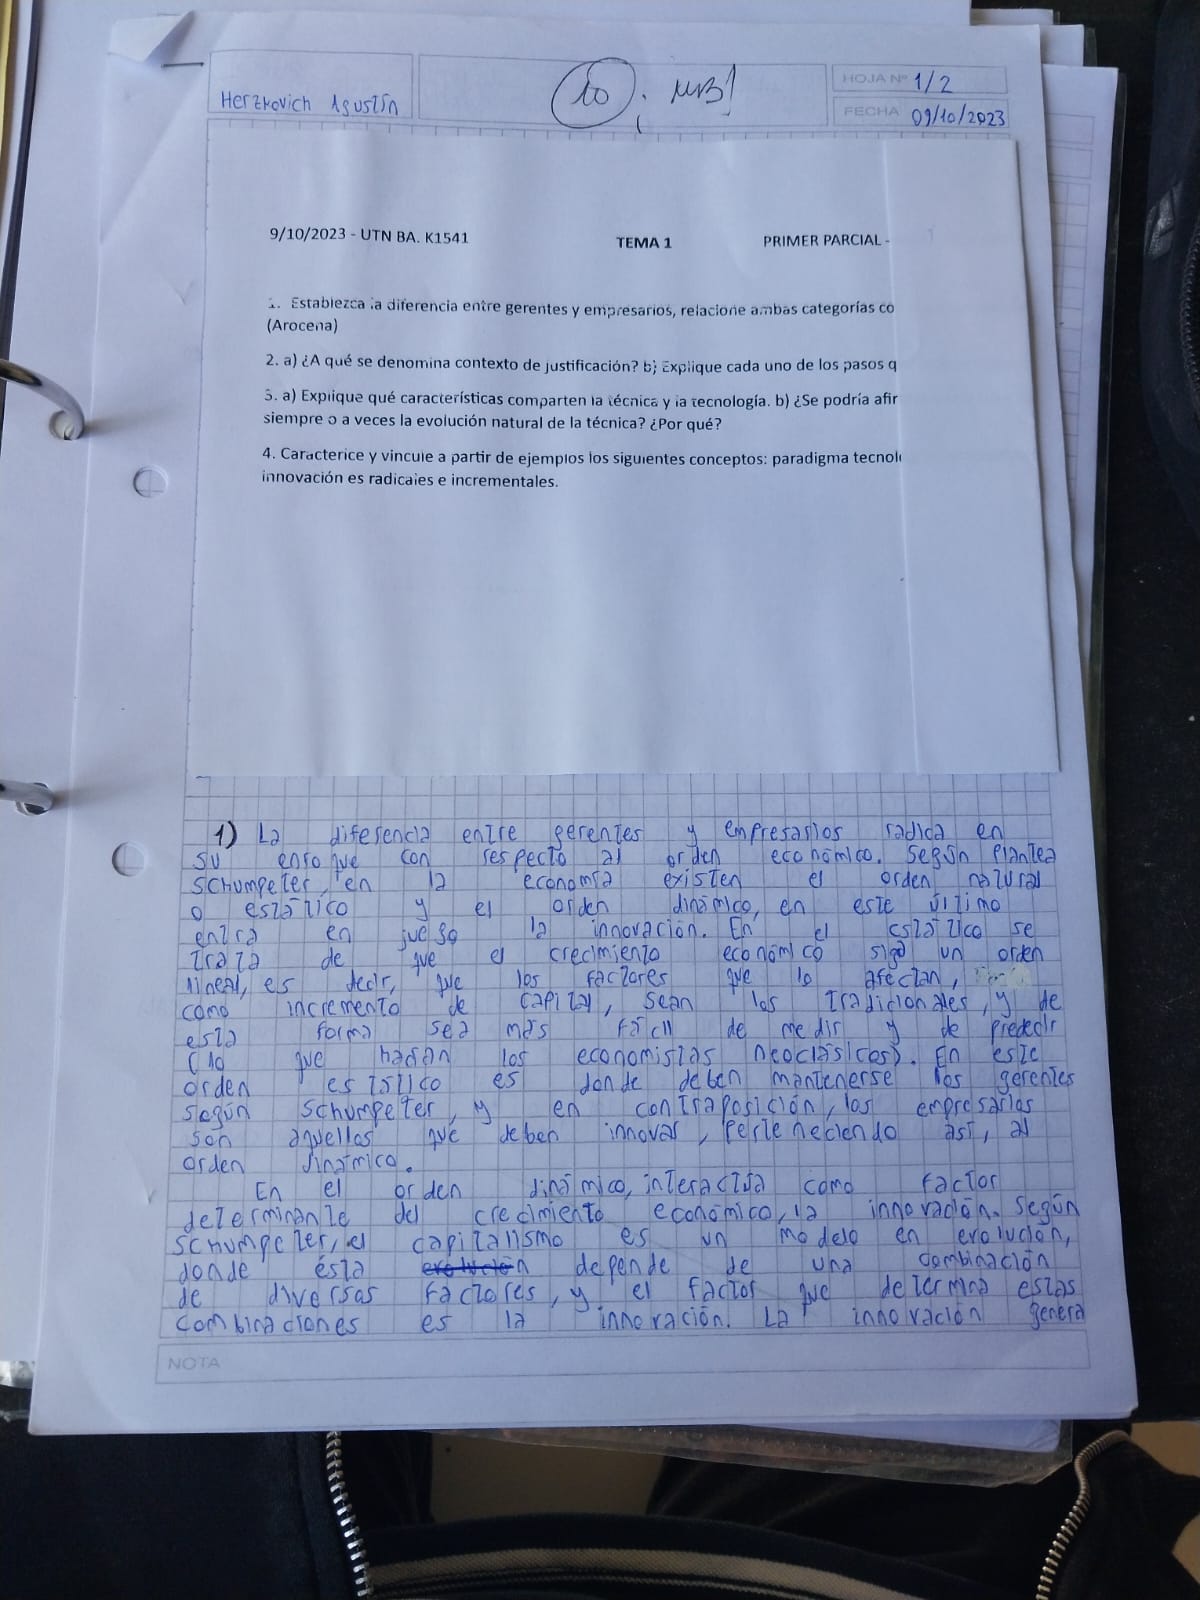 Herzkovich Agustín
10 . MB!
HOJA Nº 1/2
FECHA 09/10/2023
9/10/2023 - UTN BA. K1541 TEMA 1 PRIMER PARCIAL -
1. Establezca la diferencia entre gerentes y empresarios, relacione ambas categorías co
(Arocena)
2. a) ¿A qué se denomina contexto de justificación? b) Explique cada uno de los pasos q
3. a) Explique qué características comparten la técnica y la tecnología. b) ¿Se podría afir
siempre o a veces la evolución natural de la técnica? ¿Por qué?
4. Caracterice y vincule a partir de ejemplos los siguientes conceptos: paradigma tecnol
innovación es radicales e incrementales.
1) La diferencia entre gerentes y empresarios radica en
su enfoque con respecto al orden económico. Según plantea
Schumpeter, en la economía existen el orden natural
o estático y el orden dinámico, en este último
entra en juego la innovación. En el estático se
trata de que el crecimiento económico siga un orden
lineal, es decir, que los factores que lo afectan,
como incremento de capital, sean los tradicionales, y de
esta forma sea más fácil de medir y de predecir
(lo que hacían los economistas neoclásicos). En este
orden estático es donde deben mantenerse los gerentes
según Schumpeter, y en contraposición, los empresarios
son aquellos que deben innovar, perteneciendo así, al
orden dinámico.
En el orden dinámico, interactúa como factor
determinante del crecimiento económico, la innovación. Según
Schumpeter, el capitalismo es un modelo en evolución,
donde ésta evolución depende de una combinación
de diversos factores, y el factor que determina estas
combinaciones es la innovación. La innovación genera
NOTA